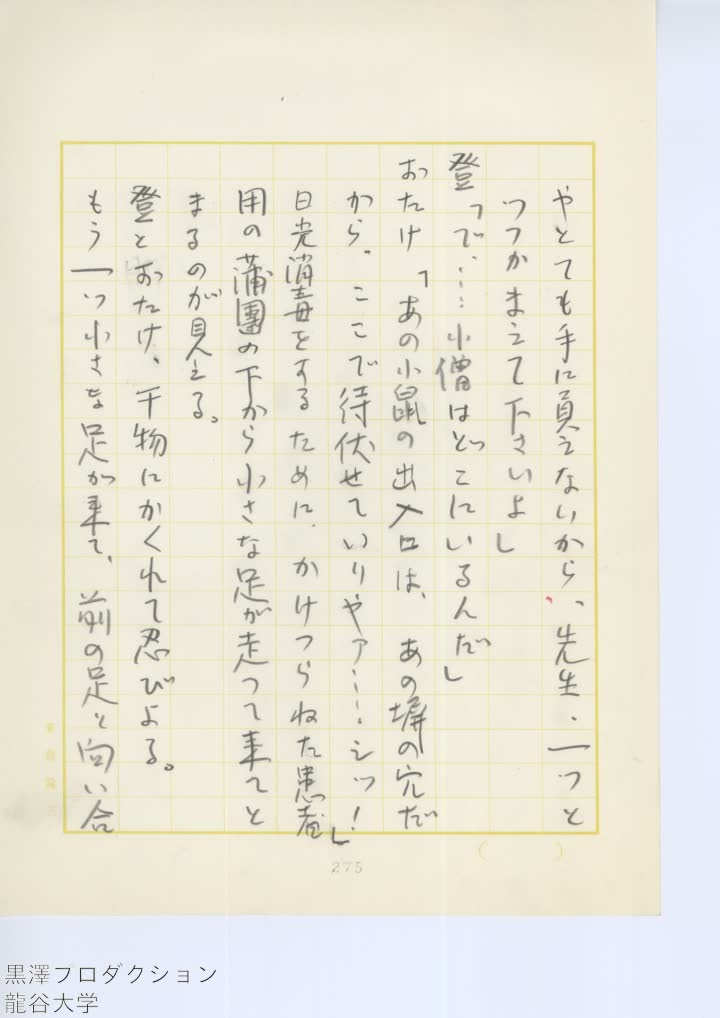 やとても手に負えないから、先生、一つと
ッつかまえて下さいよ」
登「で……小僧はどこにいるんだ」
おたけ「あの小鼠の出入口は、あの塀の穴だ
から、ここで待伏せていりやァ……シッ！」
日光消毒をするために、かけつらねた患者
用の蒲團の下から小さな足が走つて来てと
まるのが見える。
登とおたけ、干物にかくれて忍びよる。
もう一つ小さな足が来て、前の足と向い合
275
黒澤プロダクション
龍谷大学